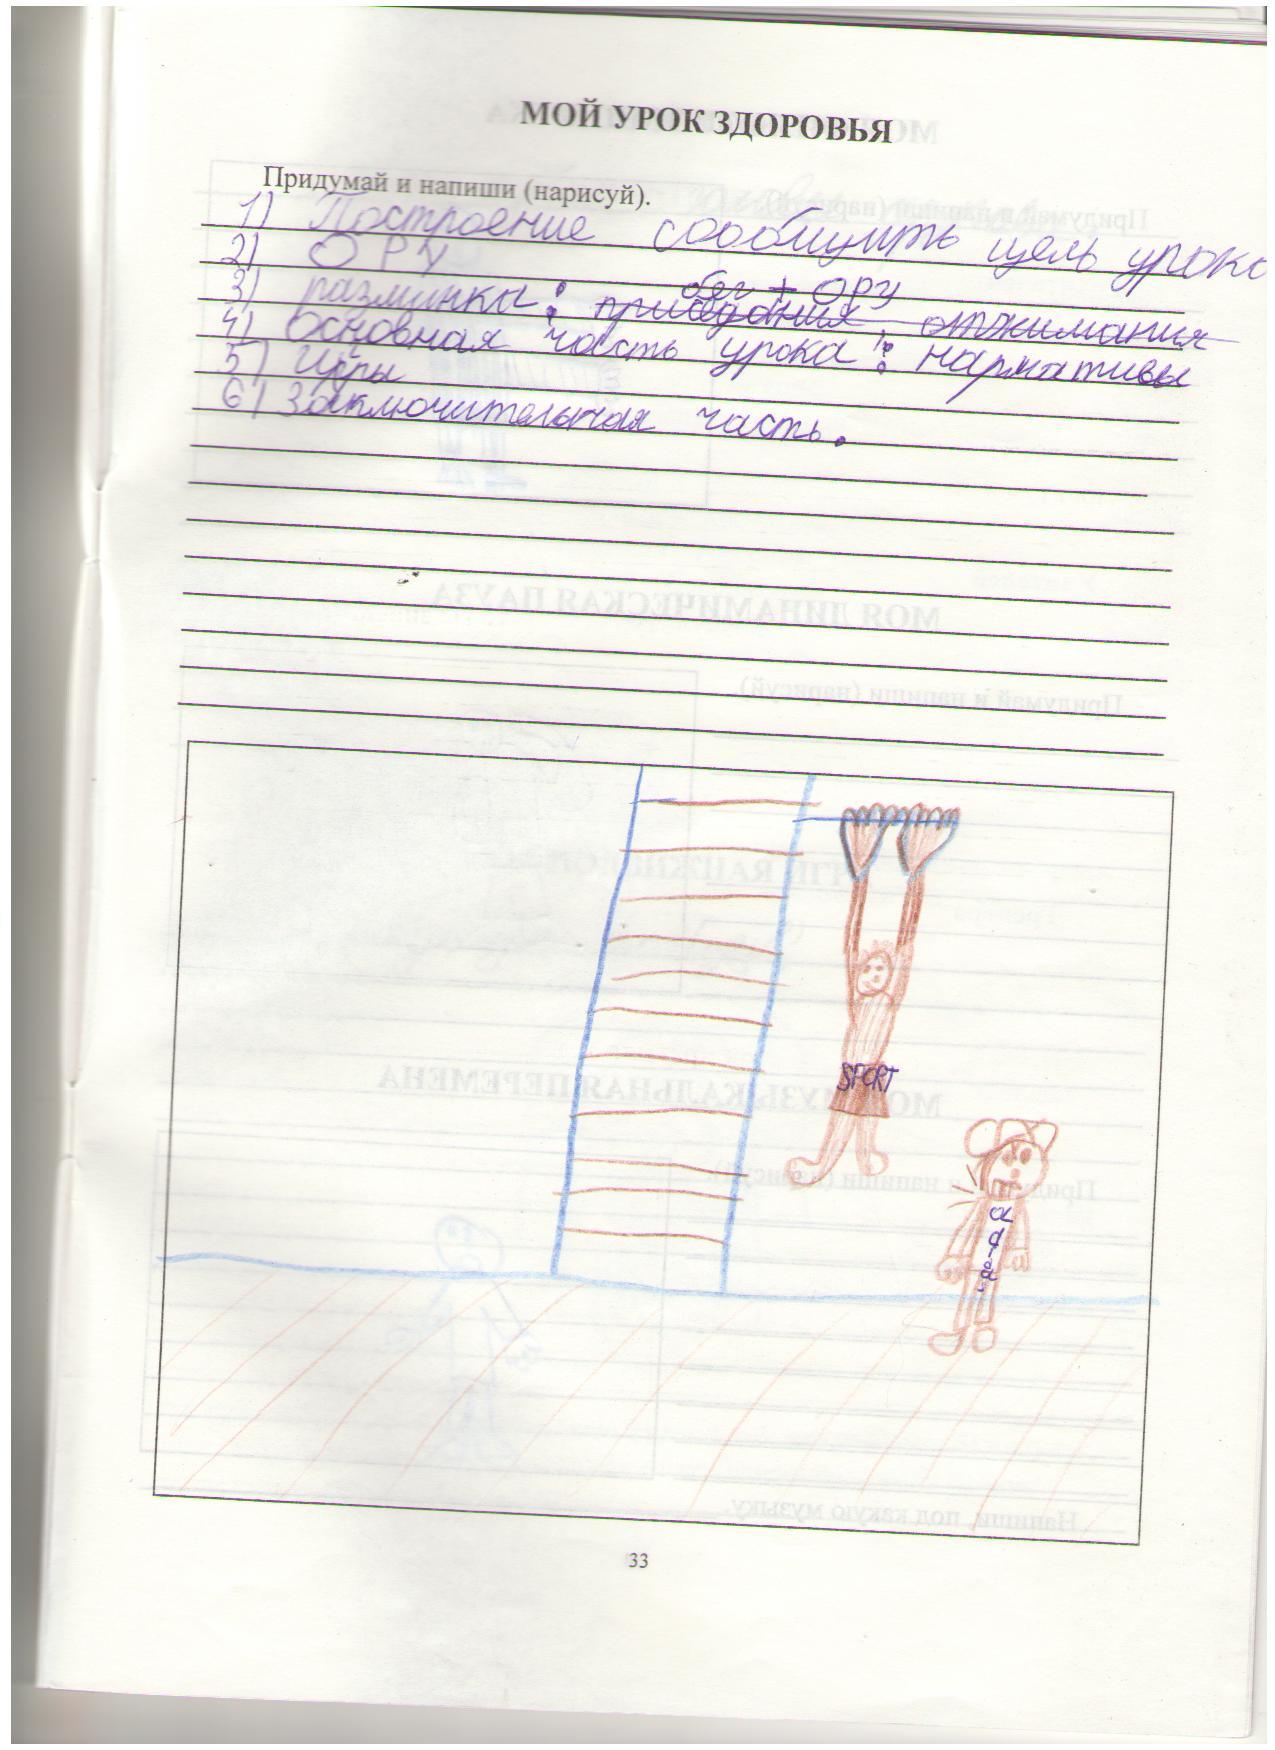 МОЙ УРОК ЗДОРОВЬЯ
Придумай и напиши (нарисуй).
1) Построение сообщить цель урока
2) ОРУ
бег + ОРУ
3) разминка: приседания, отжимания
4) Основная часть урока: нармативы
5) Игры
6) Заключительная часть.
SPORT
33